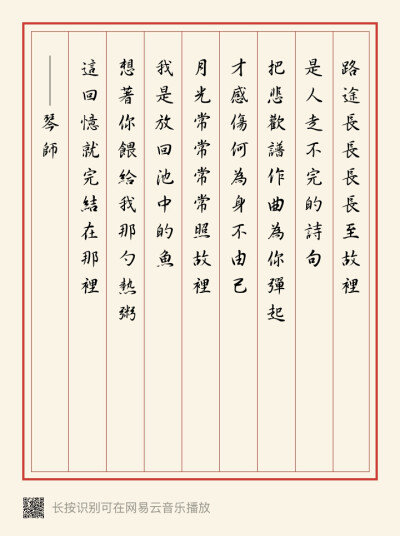 路途長長長長至故裡
是人走不完的詩句
把悲歡譜作曲為你彈起
才感傷何為身不由己
月光常常常常照故裡
我是放回池中的魚
想著你餵給我那勺熱粥
這回憶就完結在那裡
——琴師
长按识别可在网易云音乐播放